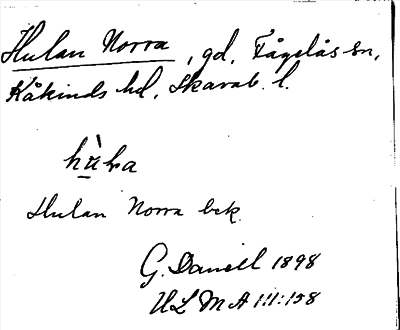 Hulan Norra, gd, Fågelås sn,
Kåkinds hd, Skarab. l.
Hulan Norra bek.
G. Daniell 1898
ULMA 111:158